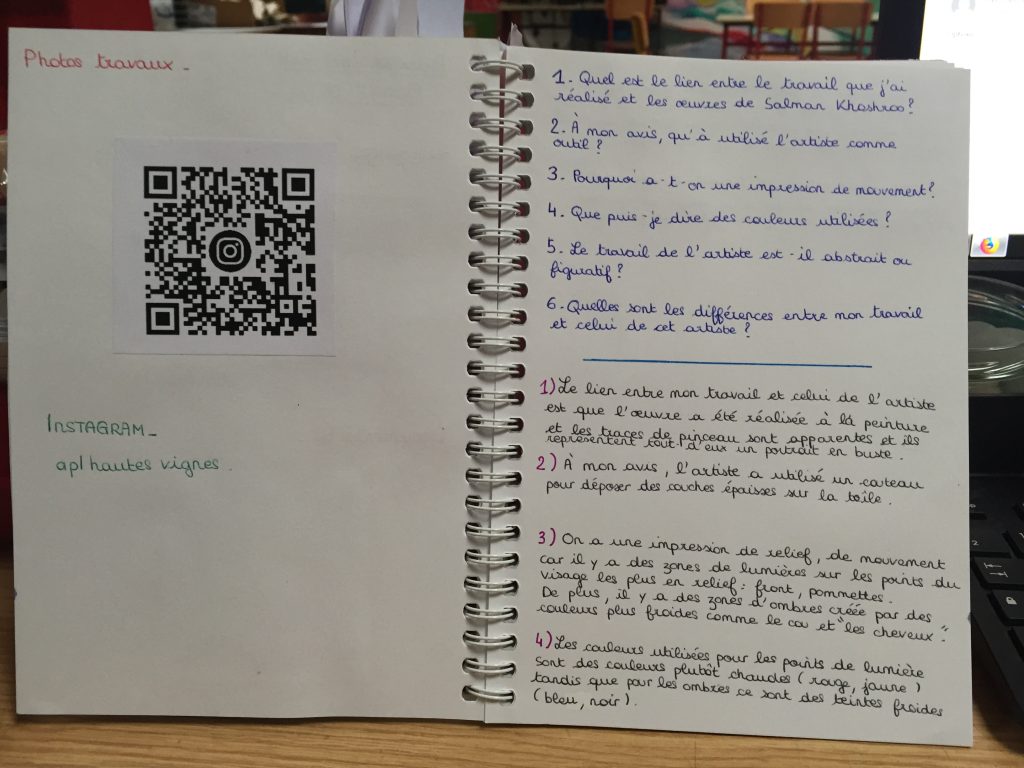 Photos travaux -
INSTAGRAM -
apl hautes vignes.
1. Quel est le lien entre le travail que j'ai
réalisé et les œuvres de Salman Khoshroo?
2. À mon avis, qu'à utilisé l'artiste comme
outil ?
3. Pourquoi a-t-on une impression de mouvement?
4. Que puis-je dire des couleurs utilisées ?
5. Le travail de l'artiste est-il abstrait ou
figuratif ?
6. Quelles sont les différences entre mon travail
et celui de cet artiste ?
1) Le lien entre mon travail et celui de l'artiste
est que l'œuvre a été réalisée à la peinture
et les traces de pinceau sont apparentes et ils
représentent tout d'eux un portrait en buste.
2) À mon avis, l'artiste a utilisé un couteau
pour déposer des couches épaisses sur la toîle.
3) On a une impression de relief, de mouvement
car il y a des zones de lumières sur les points du
visage les plus en relief : front, pommettes.
De plus, il y a des zones d'ombres créée par des
couleurs plus froides comme le cou et "les cheveux".
4) Les couleurs utilisées pour les points de lumière
sont des couleurs plutôt chaudes (rouge, jaune)
tandis que pour les ombres ce sont des teintes froides
(bleu, noir).